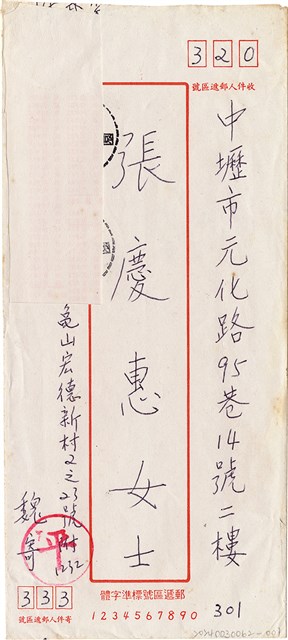 320
收件人郵遞區號
中壢市元化路95巷14號二樓
301
張慶惠女士
國
龜山宏德新村2之23號附1232
魏寄
平
333
寄件人郵遞區號
郵遞區號標準字體
1234567890